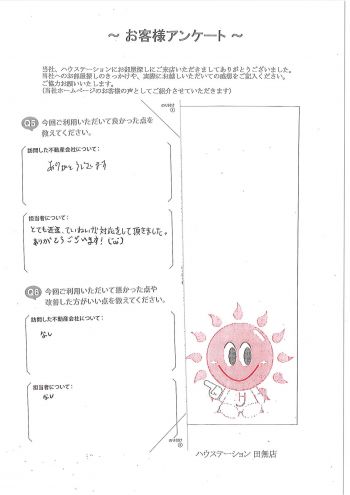 ～ お客様アンケート ～
当社、ハウステーションにお部屋探しにご来店いただきましてありがとうございました。
当社へのお部屋探しのきっかけや、実際にお越しいただいての感想をご記入ください。
ご協力お願いいたします。
(当社ホームページのお客様の声としてご紹介させていただきます)
Q5 今回ご利用いただいて良かった点を
教えてください。
訪問した不動産会社について：
ありがとうございます
担当者について：
とても迅速、ていねいな対応をして頂きました。
ありがとうございます!
Q6 今回ご利用いただいて悪かった点や
改善した方がいい点を教えてください。
訪問した不動産会社について：
なし
担当者について：
なし
ハウステーション 田無店